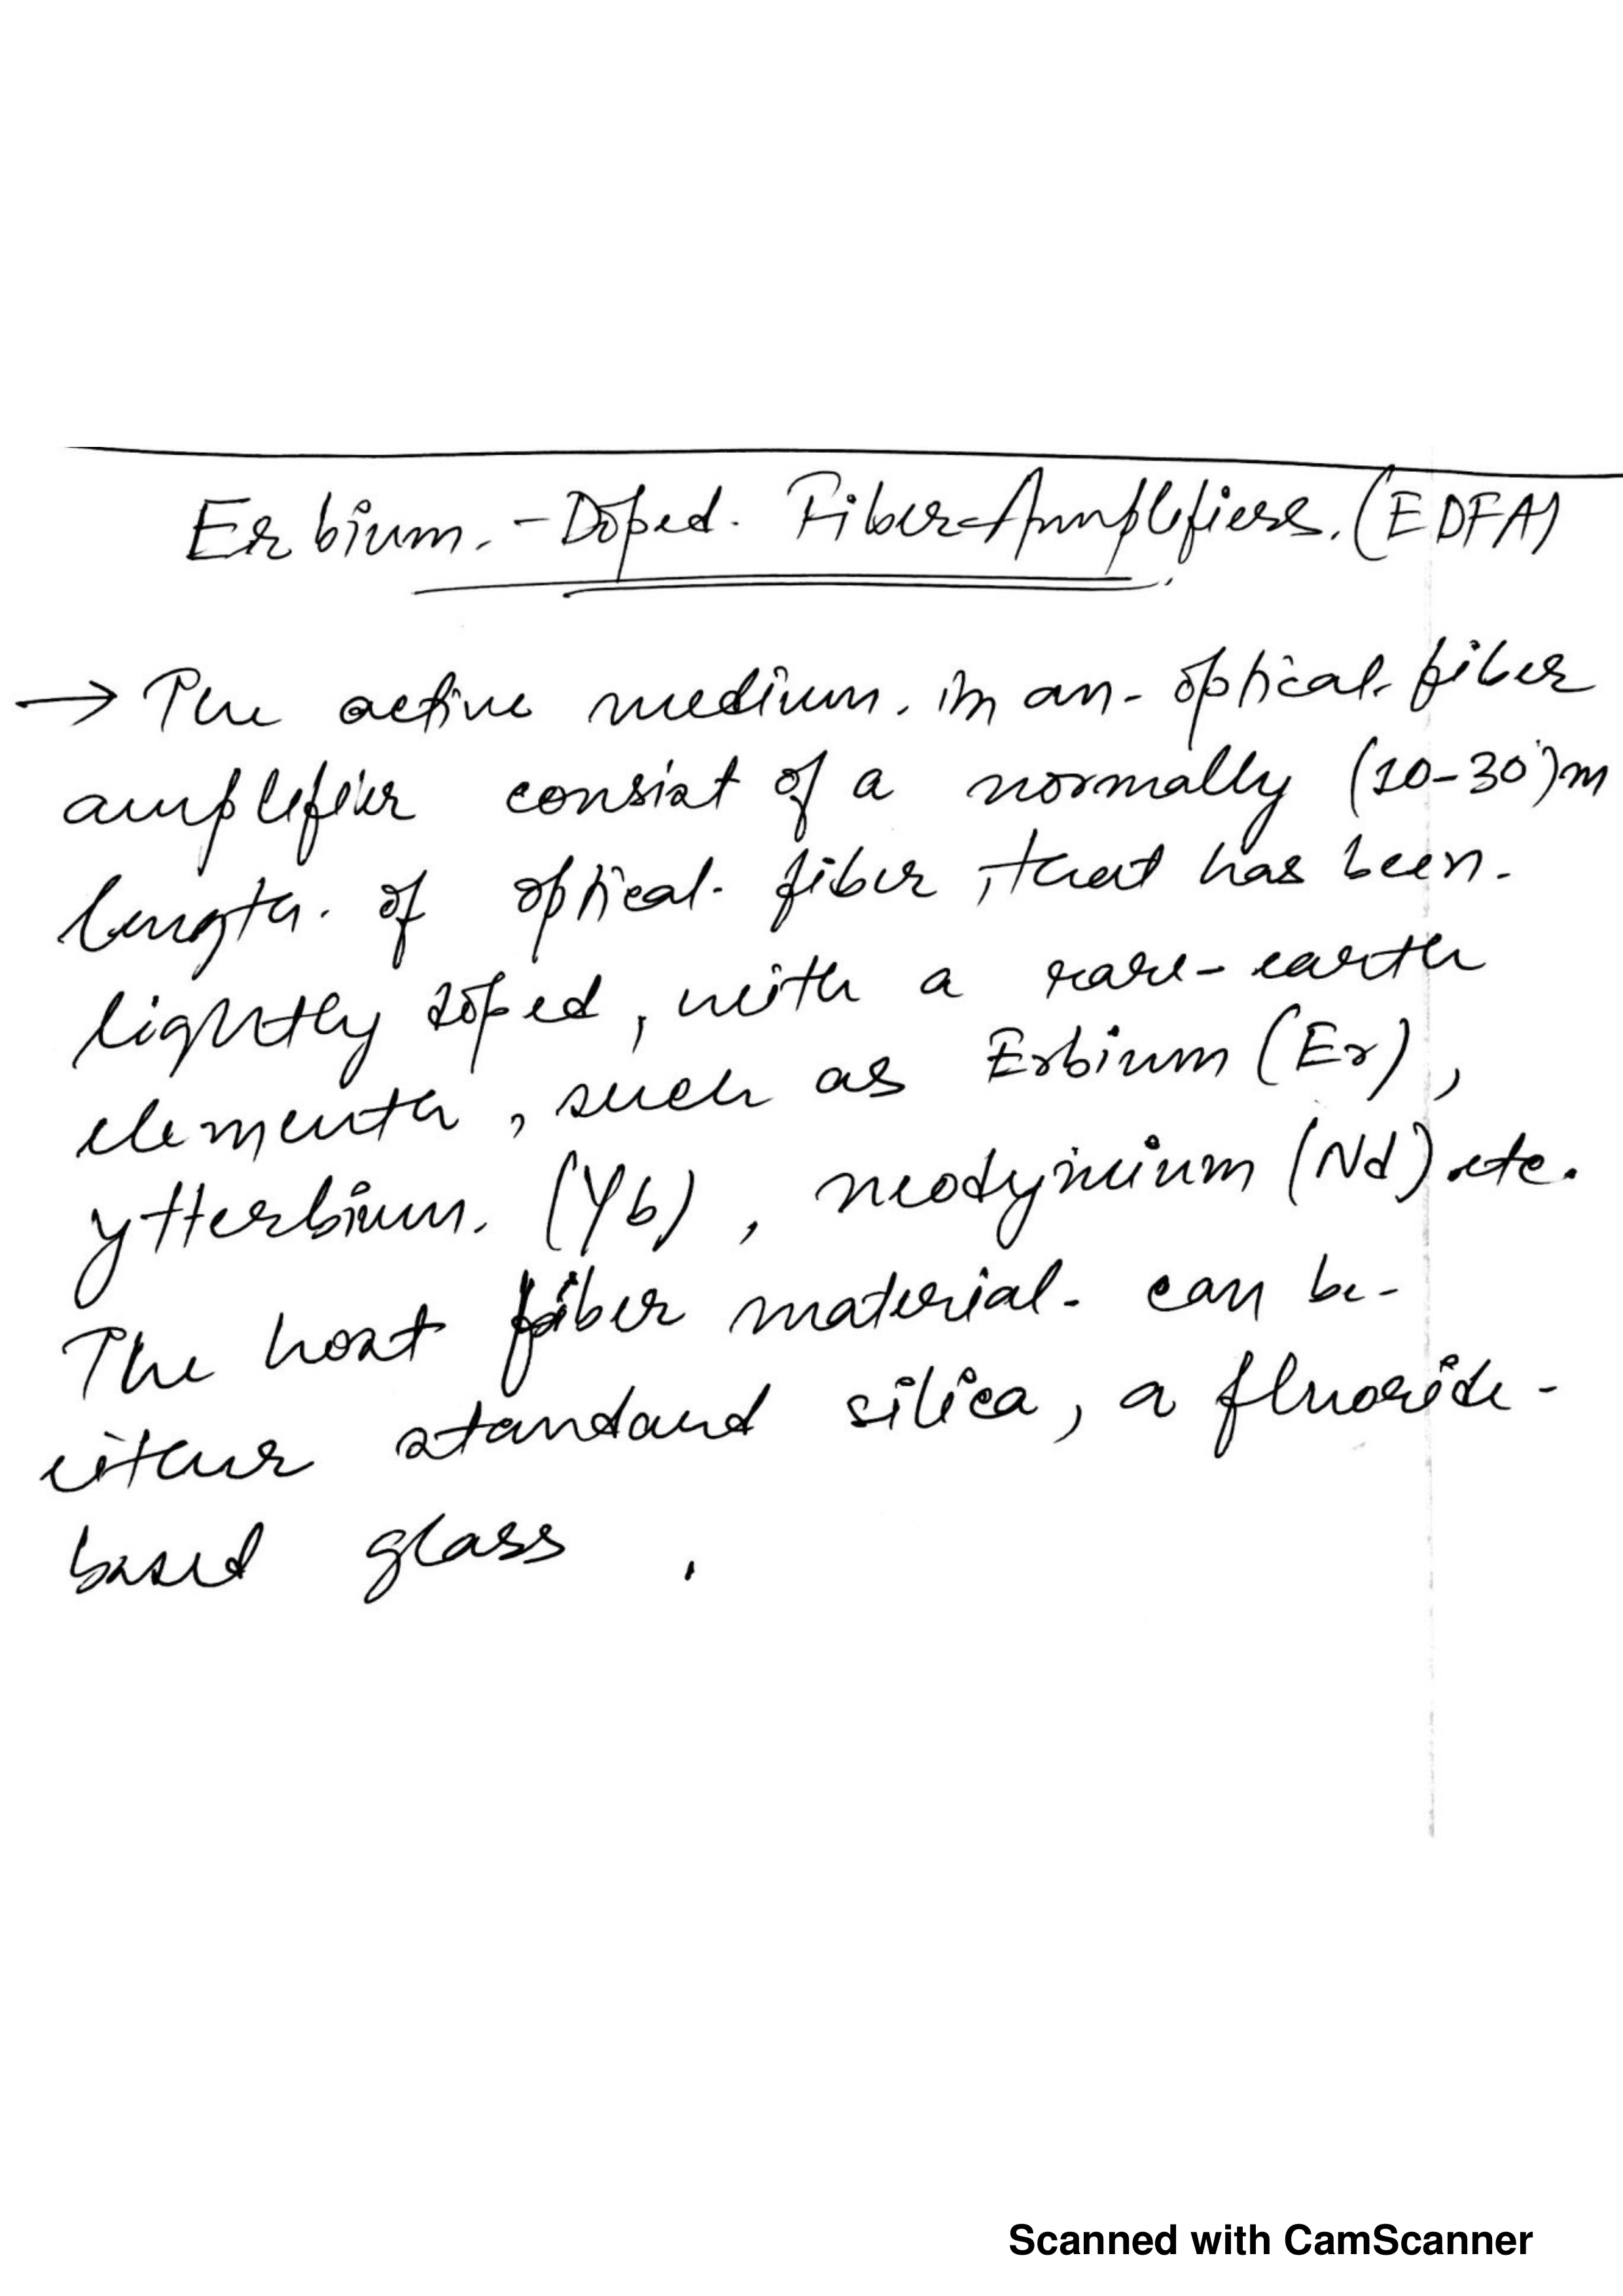 Erbium. - Doped. Fiber-Amplifiers. (EDFA)
→ The active medium. in an- optical. fiber
amplifier consist of a normally (10-30)m
length. of optical. fiber, that has been.
lightly doped, with a rare-earth
elementh, such as Erbium (Er),
ytterbium. (Yb), neodymium (Nd) etc.
The host fiber material. can be-
either standard silica, a fluoride-
based glass.
Scanned with CamScanner